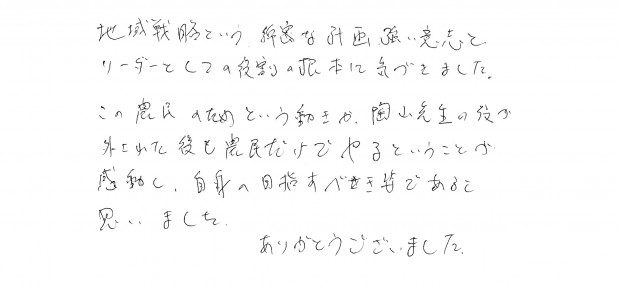 地域戦略という、綿密な計画、強い意志と
リーダーとしての役割の根本に気づきました。
この農民のためという動きが、陶山先生の役が
外された後も農民だけでやるということが
感動し、自身の目指すべき姿であると
思いました。
ありがとうございました。